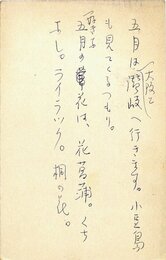 五月は大阪と讃岐へ行きます。小豆島
も見てくるつもり。
五月の好きな花は、花菖蒲。くち
なし。ライラック。桐の花。